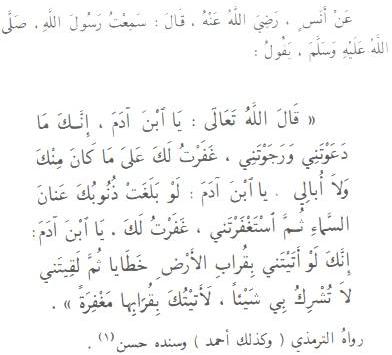 عَنْ أَنَسٍ ، رَضِيَ اللَّهُ عَنْهُ ، قَالَ : سَمِعْتُ رَسُولَ اللَّهِ ، صَلَّى
اللَّهُ عَلَيْهِ وَسَلَّمَ ، يَقُولُ :
« قَالَ اللَّهُ تَعَالَى : يَا ٱبْنَ آدَمَ ، إِنَّكَ مَا
دَعَوْتَنِي وَرَجَوْتَنِي ، غَفَرْتُ لَكَ عَلَى مَا كَانَ مِنْكَ
وَلاَ أُبَالِي . يا ٱبْنَ آدَمَ : لَوْ بَلَغَتْ ذُنُوبُكَ عَنانَ
السَّمَاءِ ثُمَّ ٱسْتَغْفَرْتَنِي ، غَفَرْتُ لَكَ . يَا ٱبْنَ آدَمَ :
إِنَّكَ لَوْ أَتَيْتَنِي بِقُرابِ الأَرْضِ خَطَايا ثُمَّ لَقِيتَنِي
لاَ تُشْرِكُ بِي شَيْئاً ، لَأَتَيْتُكَ بِقُرَابِها مَغْفِرَةً » .
رواهُ الترمذي ( وكذلك أحمد ) وسنده حسن (١) .